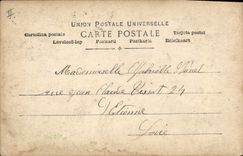 UNION POSTALE UNIVERSELLE
CARTE POSTALE
Cartolina postale Tarjeta postal
Levelező-lap Postcard Postkarte Briefkaart
Mademoiselle Gabrielle
rue Jean Claude Tissot 24
St Etienne
Loire